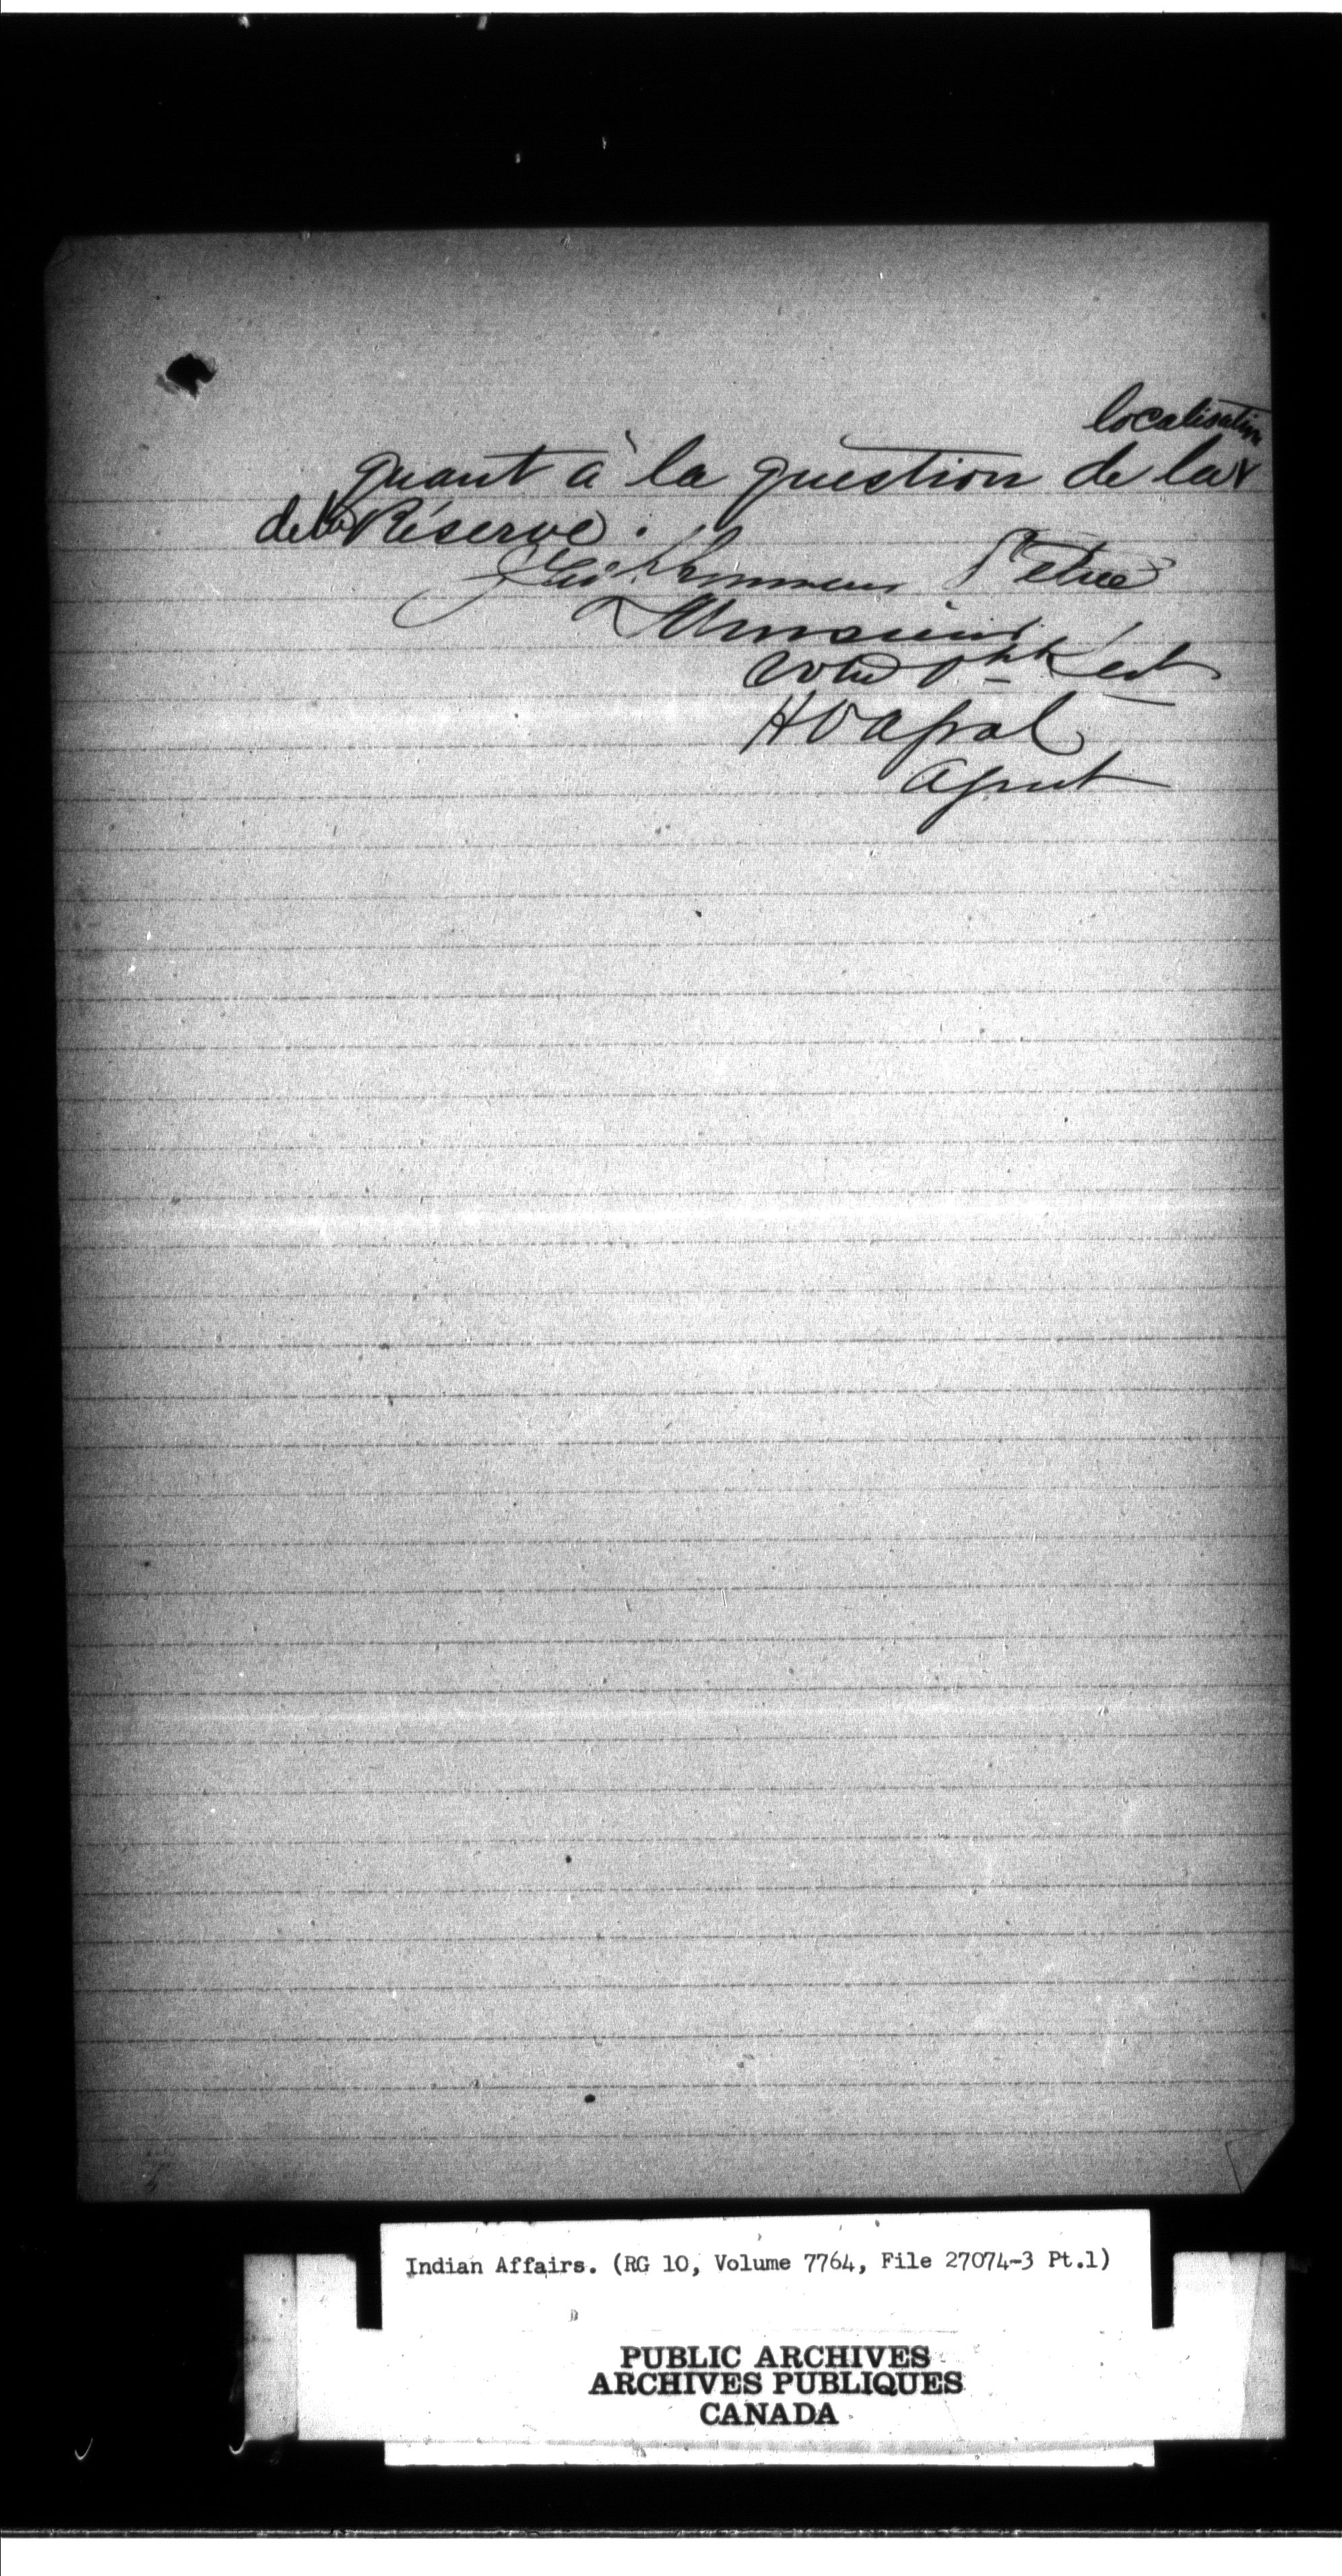 localisation
quant à la question de la x
de la Réserve.
J'ai l'honneur d'être
Monsieur
Votre
Agent
Indian Affairs. (RG 10, Volume 7764, File 27074-3 Pt.1)
PUBLIC ARCHIVES
ARCHIVES PUBLIQUES
CANADA